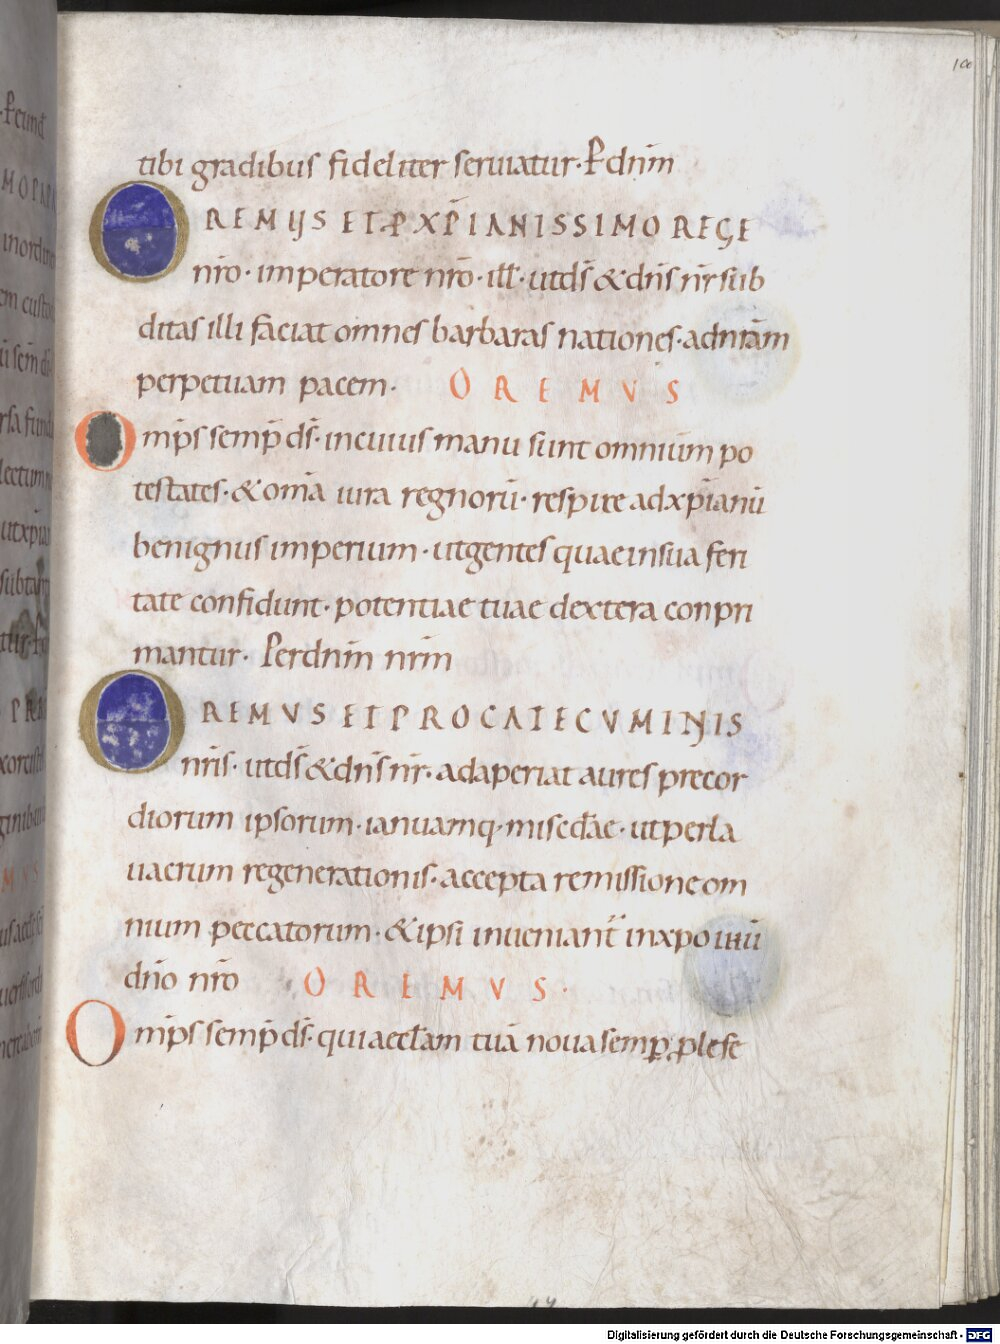 100
tibi gradibus fideliter seruiatur· P dnm̄
OREMUS ET P XP̄IANISSIMO REGE
nr̄o· imperatore nr̄o· ill̄· utds̄ & dn̄s nr̄ sub
ditas illi faciat omnes barbaras nationes· adnr̄am
perpetuam pacem· OREMVS
Omp̄s semp̄ ds̄· incuius manu sunt omnium po
testates· & om̄a iura regnorū· respice adxp̄ianū
benignus imperium· utgentes quae insua feri
tate confidunt· potentiae tuae dextera conpri
mantur· Perdnm̄ nr̄m
OREMVS ET PRO CATECVMINIS
nr̄is· utds̄ & dn̄s nr̄· adaperiat aures precor
diorum ipsorum· ianuamq· miscd̄ae· utperla
uacrum regenerationis· accepta remissione om
nium peccatorum· & ipsi inueniant̄ inxpo ihū
dn̄o nr̄o OREMVS·
Omp̄s semp̄ ds̄· qui aeccl̄am tuā noua semp ꝓlese
Digitalisierung gefördert durch die Deutsche Forschungsgemeinschaft - DFG